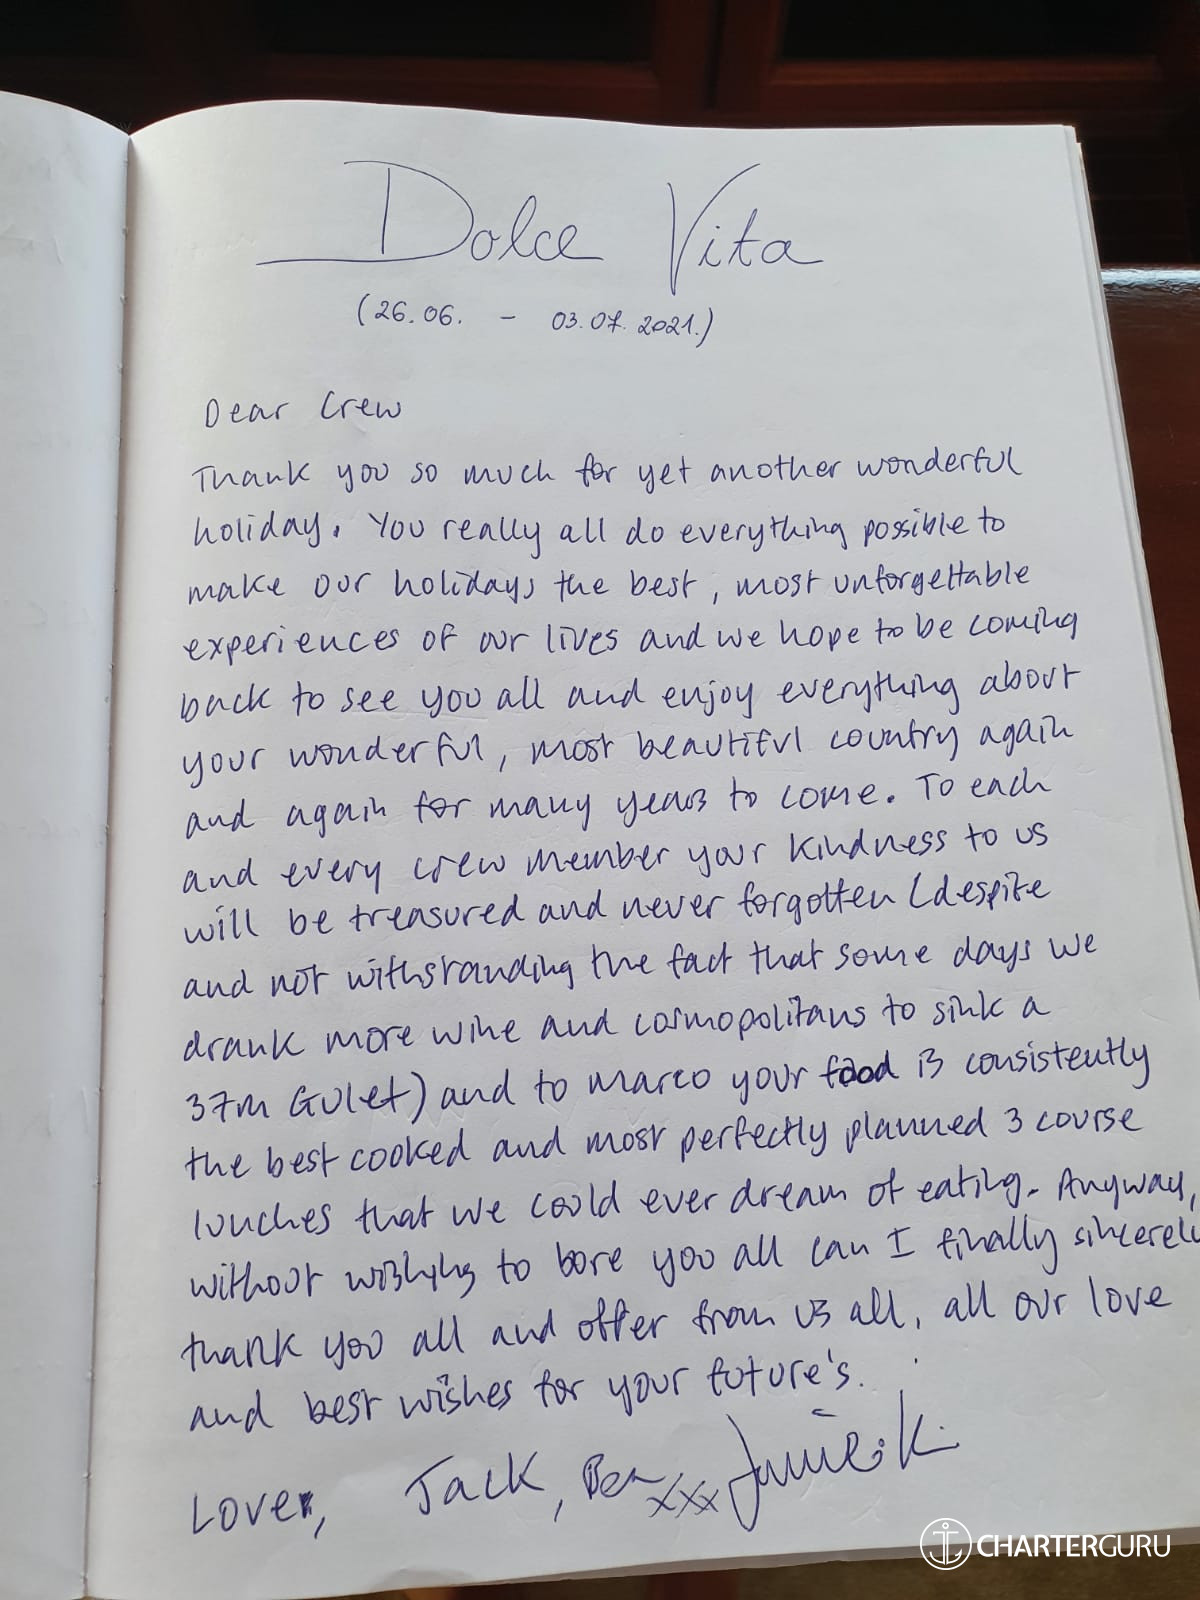 Dolce Vita
(26.06. - 03.07.2021.)
Dear Crew
Thank you so much for yet another wonderful
holiday. You really all do everything possible to
make our holidays the best, most unforgettable
experiences of our lives and we hope to be coming
back to see you all and enjoy everything about
your wonderful, most beautiful country again
and again for many years to come. To each
and every crew member your kindness to us
will be treasured and never forgotten (despite
and not withstanding the fact that some days we
drank more wine and cosmopolitans to sink a
37m Gulet) and to Marco your food is consistently
the best cooked and most perfectly planned 3 course
lunches that we could ever dream of eating. Anyway,
without wishing to bore you all can I finally sincerely
thank you all and offer from us all, all our love
and best wishes for your future's.
Love, Jack, Ben
xxx
CHARTERGURU